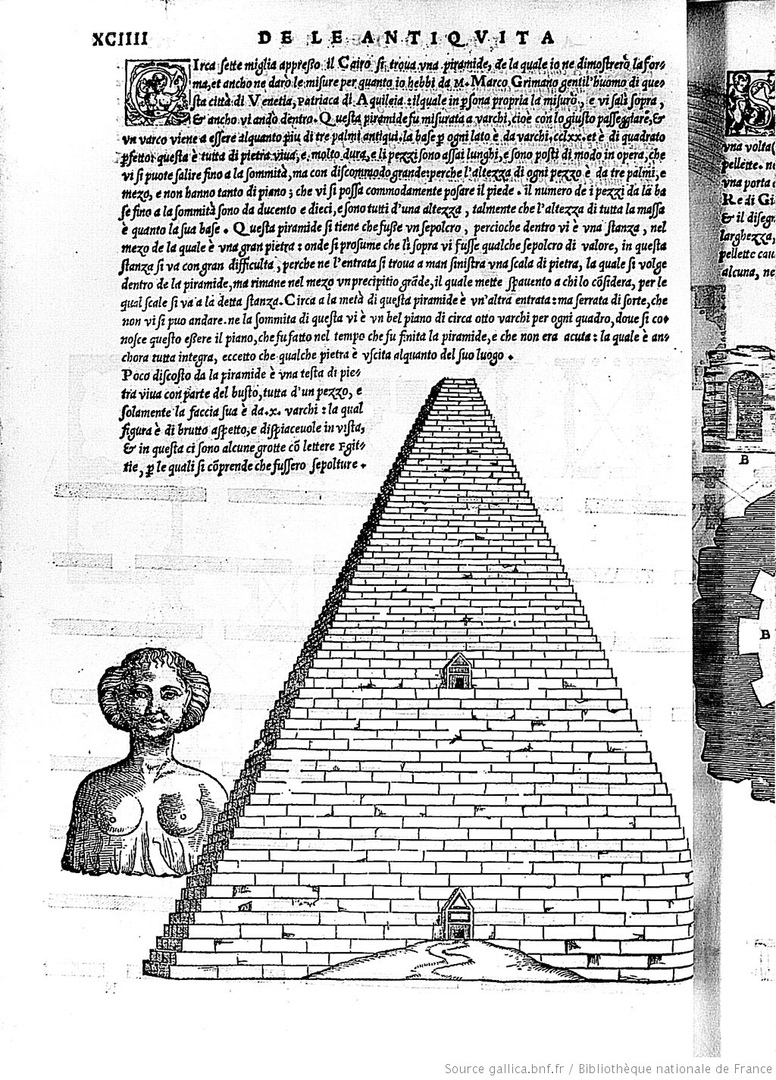 XCIIII
DE LE ANTIQVITA
CIrca sette miglia appresso il Cairo si troua vna piramide, de la quale io ne dimostrerò la for-
ma, et ancho ne darò le misure per quanto io hebbi da M. Marco Grimano gentil'huomo di que-
sta città di Venetia, Patriaca di Aquileia: il quale in psona propria la misurò, e vi salì sopra,
& ancho vi andò dentro. Questa piramide fu misurata a varchi, cioè con lo giusto passeggiare, &
vn varco viene a essere alquanto piu di tre palmi antiqui. la base p ogni lato è da varchi. cclxx. et è di quadrato
pfetto: questa è tutta di pietra viua, e, molto dura, e li pezzi sono assai lunghi, e sono posti di modo in opera, che
vi si puote salire fino a la sommità, ma con discommodo grande: perche l'altezza di ogni pezzo è da tre palmi, e
mezo, e non hanno tanto di piano; che vi si possa commodamente posare il piede. il numero de i pezzi da la ba
se fino a la sommità sono da ducento e dieci, e sono tutti d'una altezza, talmente che l'altezza di tutta la massa
è quanto la sua base. Questa piramide si tiene che fusse vn sepolcro, percioche dentro vi è vna stanza, nel
mezo de la quale è vna gran pietra: onde si prosume che lì sopra vi fusse qualche sepolcro di valore, in questa
stanza si va con gran difficulta, perche ne l'entrata si troua a man sinistra vna scala di pietra, la quale si volge
dentro de la piramide, ma rimane nel mezo vn precipitio grãde, il quale mette spauento a chi lo cõsidera, per le
qual scale si va a la detta stanza. Circa a la metà di questa piramide è vn'altra entrata: ma serrata di sorte, che
non vi si puo andare. ne la sommita di questa vi è vn bel piano di circa otto varchi per ogni quadro, doue si co-
nosce questo essere il piano, che fu fatto nel tempo che fu finita la piramide, e che non era acuta: la quale è an-
chora tutta integra, eccetto che qualche pietra è vscita alquanto del suo luogo.
Poco discosto da la piramide è vna testa di pie-
tra viua con parte del busto, tutta d'un pezzo, e
solamente la faccia sua è da. x. varchi: la qual
figura è di brutto aspetto, e dispiaceuole in vista,
& in questa ci sono alcune grotte cõ lettere Egit-
tie, p le quali si cõprende che fussero sepolture.
S
vna volta(
pellette. n
vna porta
Re di Gi
& il diseg
larghezza,
pellette cau
alcuna, ne
B
B
Source gallica.bnf.fr / Bibliothèque nationale de France